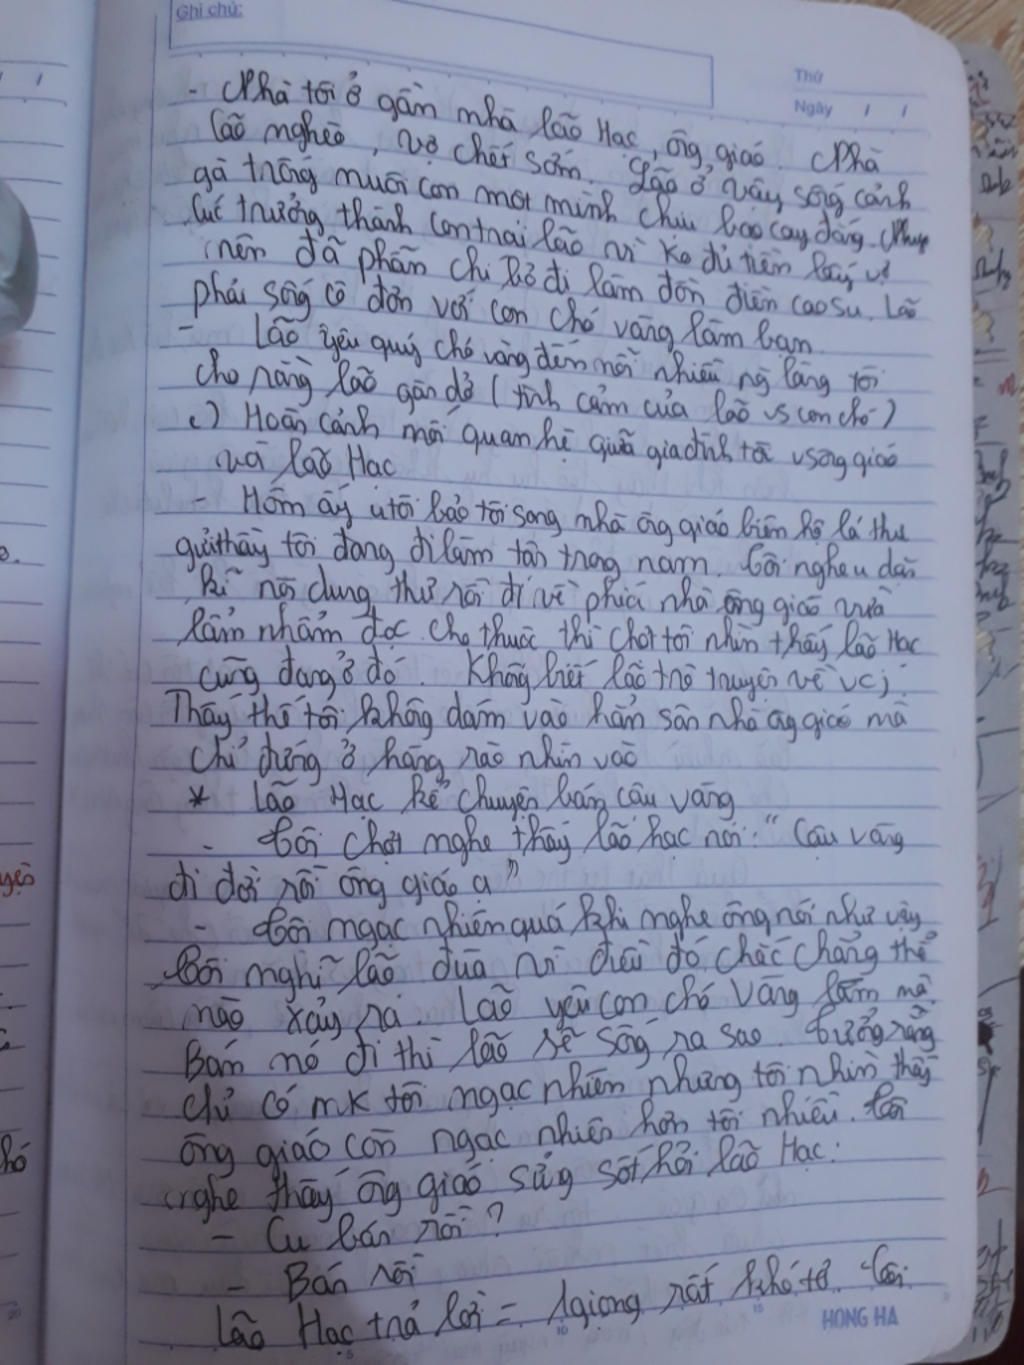 Ghi chú:
Thứ
Ngày / /
- Nhà tôi ở gần nhà lão Hạc, ông giáo. Nhà
lão nghèo, vợ chết sớm. Lão ở vậy sống cảnh
gà trống nuôi con một mình chịu bao cay đắng. Nhưng
lúc trưởng thành con trai lão vì ko đủ tiền lấy vợ
nên đã phẫn chí bỏ đi làm đồn điền cao su. Lão
phải sống cô đơn với con chó vàng làm bạn.
- Lão yêu quý chó vàng đến nỗi nhiều ng làng tôi
cho rằng lão gàn dở (tình cảm của lão vs con chó)
c) Hoàn cảnh mối quan hệ giữa gia đình tôi vs ông giáo
và lão Hạc
- Hôm ấy u tôi bảo tôi sang nhà ông giáo biên hộ lá thư
gửi thầy tôi đang đi làm tận trong nam. Tôi nghe u dặn
kĩ nội dung thư rồi đi về phía nhà ông giáo vừa
lẩm nhẩm đọc cho thuộc thì chợt tôi nhìn thấy lão Hạc
cũng đang ở đó. Không biết lão trò truyện về vcj.
Thấy thế tôi không dám vào hẳn sân nhà ông giáo mà
chỉ đứng ở hàng rào nhìn vào
* Lão Hạc kể chuyện bán cậu vàng
- Tôi chợt nghe thấy lão hạc nói: "Cậu vàng
đi đời rồi ông giáo ạ"
- Tôi ngạc nhiên quá khi nghe ông nói như vậy
Tôi nghĩ lão đùa vì điều đó chắc chẳng thể
nào xảy ra. Lão yêu con chó vàng lắm mà.
Bán nó đi thì lão sẽ sống ra sao. Tưởng rằng
chỉ có mk tôi ngạc nhiên nhưng tôi nhìn thấy
ông giáo còn ngạc nhiên hơn tôi nhiều. Tôi
nghe thấy ông giáo sửng sốt hỏi lão Hạc:
- Cụ bán rồi?
- Bán rồi
Lão Hạc trả lời = 1 giọng rất khó tả. Tôi
HONG HA